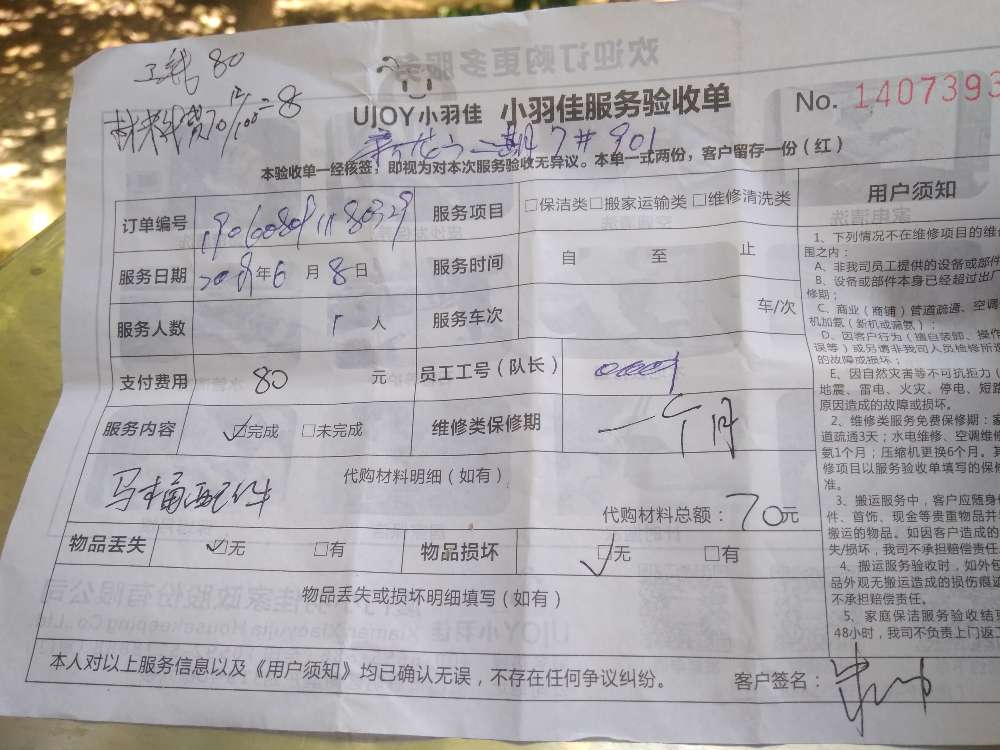 工钱 80
材料费70
UJOY小羽佳 小羽佳服务验收单 No. 1407393
二期7#901
本验收单一经核签，即视为对本次服务验收无异议。本单一式两份，客户留存一份（红）
订单编号 服务项目 □保洁类□搬家运输类□维修清洗类
服务日期 年6月8日 服务时间 自 至 止
服务人数 1人 服务车次 车/次
支付费用 80 元 员工工号（队长）
服务内容 ☑完成 □未完成 维修类保修期 一个月
代购材料明细（如有）
马桶配件
代购材料总额：70元
物品丢失 ☑无 □有 物品损坏 ☑无 □有
物品丢失或损坏明细填写（如有）
本人对以上服务信息以及《用户须知》均已确认无误，不存在任何争议纠纷。 客户签名：
用户须知
1、下列情况不在维修项目的维
围之内：
A、非我司员工提供的设备或部件
B、设备或部件本身已经超过出厂
修期；
C、商业（商铺）管道疏通、空调
机加氨（新机或漏氨）；
D、因客户行为（擅自装卸、操作
误等）或另请非我司人员检修所造
的故障或损坏；
E、因自然灾害等不可抗拒力（
地震、雷电、火灾、停电、短路
原因造成的故障或损坏。
2、维修类服务免费保修期：家
道疏通3天；水电维修、空调维修
氨1个月；压缩机更换6个月。其
修项目以服务验收单填写的保修
准。
3、搬运服务中，客户应随身
件、首饰、现金等贵重物品并
搬运的物品。如因客户造成的
失/损坏，我司不承担赔偿责任
4、搬运服务验收时，如外包
品外观无搬运造成的损伤痕迹
不承担赔偿责任。
5、家庭保洁服务验收结束
48小时，我司不负责上门返工